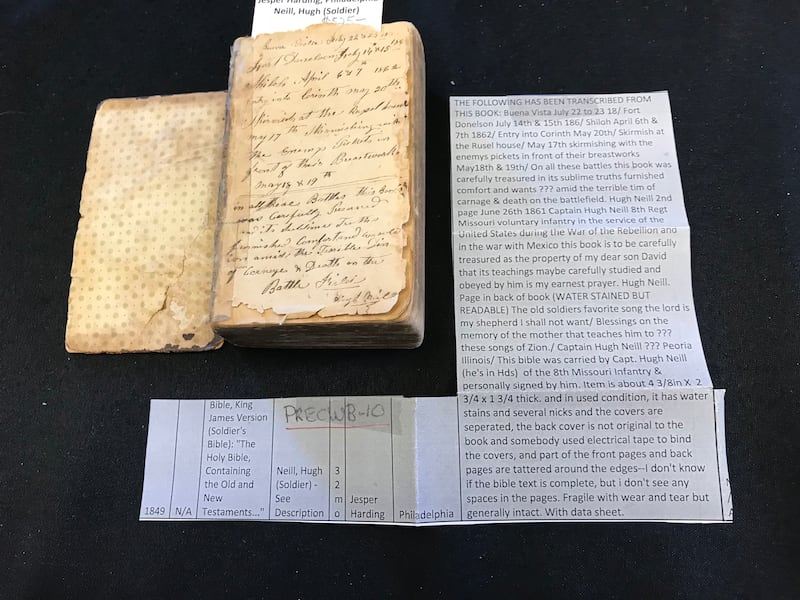 Jesper Harding, Philadelphia
Neill, Hugh (Soldier)
Buena Vista July 22 & 23 18
Fort Donelson July 14 & 15 186
Shiloh April 6 & 7 1862
entry into Corinth may 20th
Skirmish at the Rusel house
may 17th Skirmishing with
the Enemys Pickets in
front of their Breastworks
may 18 & 19th
in all these Battles this Book
was Carefully
its Sublime Truths
furnished Comfort and
amidst the Terrible
of Carnage & Death on the
Battle Field
Hugh Neill
THE FOLLOWING HAS BEEN TRANSCRIBED FROM
THIS BOOK: Buena Vista July 22 to 23 18/ Fort
Donelson July 14th & 15th 186/ Shiloh April 6th &
7th 1862/ Entry into Corinth May 20th/ Skirmish at
the Rusel house/ May 17th skirmishing with the
enemys pickets in front of their breastworks
May18th & 19th/ On all these battles this book was
carefully treasured in its sublime truths furnished
comfort and wants ??? amid the terrible tim of
carnage & death on the battlefield. Hugh Neill 2nd
page June 26th 1861 Captain Hugh Neill 8th Regt
Missouri voluntary infantry in the service of the
United States during the War of the Rebellion and
in the war with Mexico this book is to be carefully
treasured as the property of my dear son David
that its teachings maybe carefully studied and
obeyed by him is my earnest prayer. Hugh Neill.
Page in back of book (WATER STAINED BUT
READABLE) The old soldiers favorite song the lord is
my shepherd I shall not want/ Blessings on the
memory of the mother that teaches him to ???
these songs of Zion./ Captain Hugh Neill ??? Peoria
Illinois/ This bible was carried by Capt. Hugh Neill
(he's in Hds) of the 8th Missouri Infantry &
personally signed by him. Item is about 4 3/8in X 2
3/4 x 1 3/4 thick. and in used condition, it has water
stains and several nicks and the covers are
seperated, the back cover is not original to the
book and somebody used electrical tape to bind
the covers, and part of the front pages and back
pages are tattered around the edges--I don't know
if the bible text is complete, but i don't see any
spaces in the pages. Fragile with wear and tear but
generally intact. With data sheet.
PRECWB-10
Bible, King
James Version
(Soldier's
Bible): "The
Holy Bible,
Containing
the Old and
New
Testaments..."
Neill, Hugh
(Soldier) -
See
Description
3
2
m
o
Jesper
Harding
Philadelphia
1849
N/A